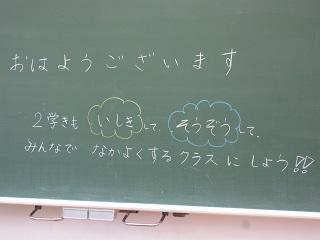 おはようございます
2学きも いしきして、そうぞうして、
みんなで なかよくするクラスにしよう!!